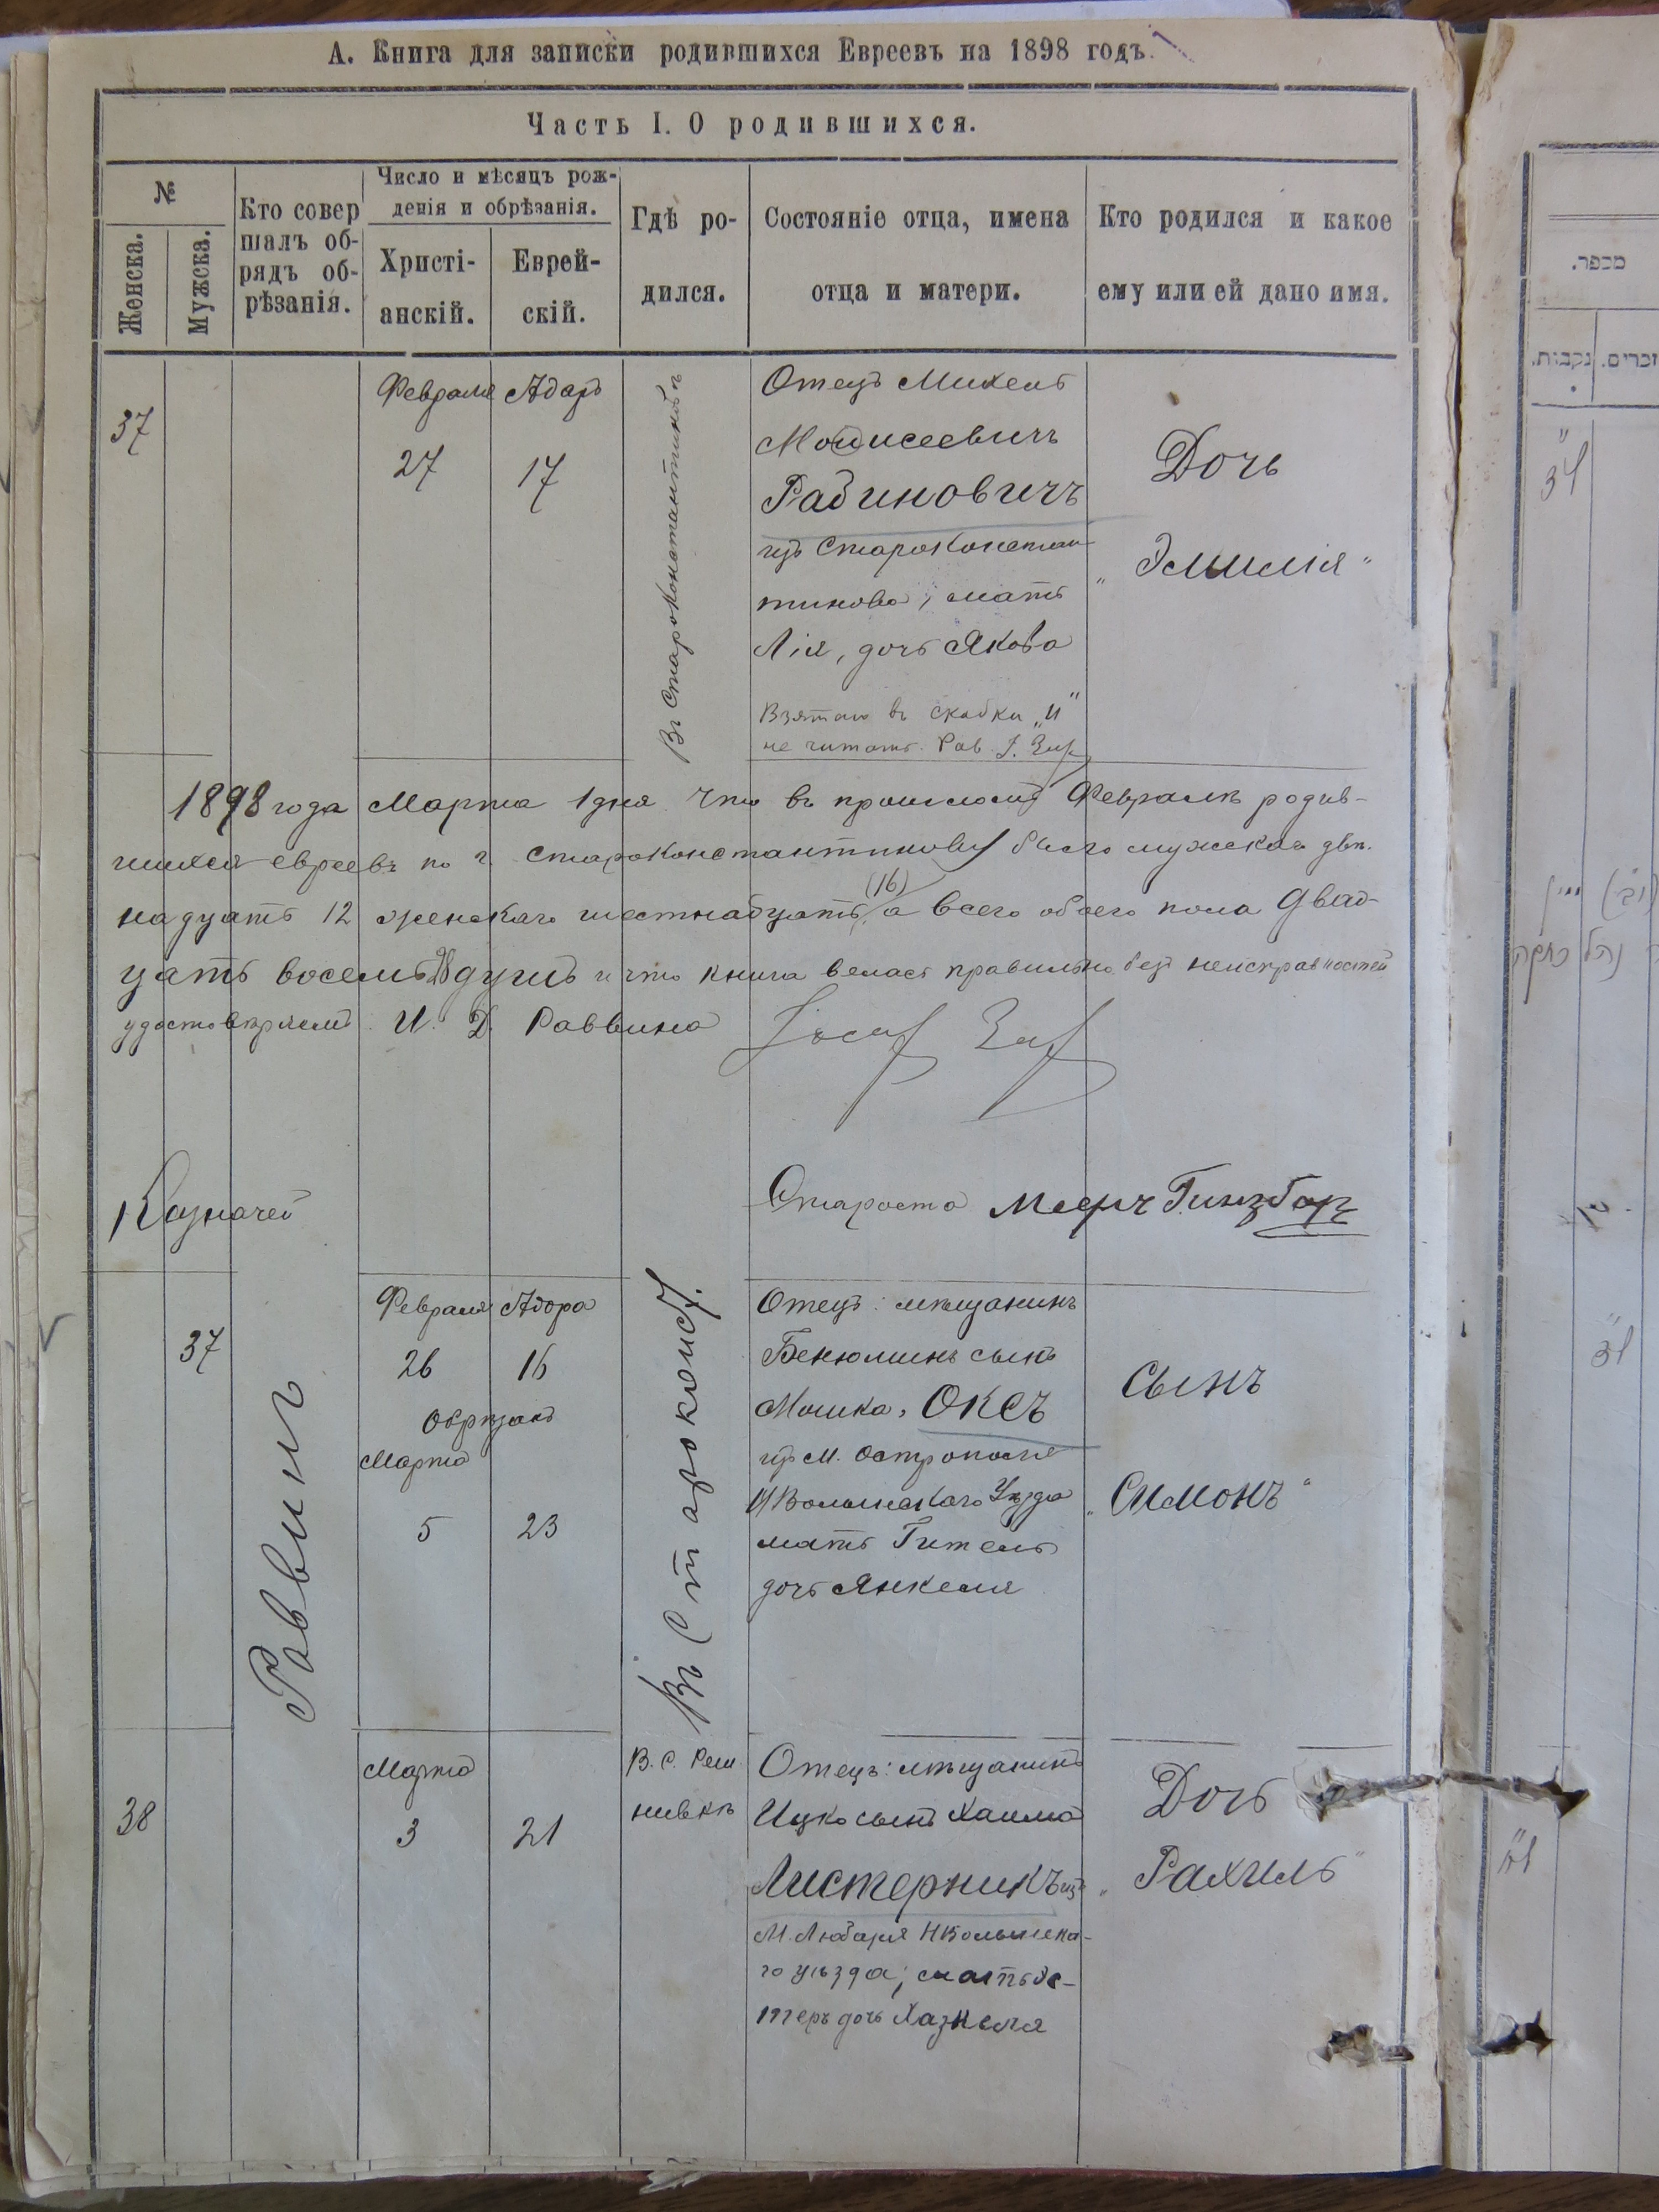 А. Книга для записки родившихся Евреевъ на 1898 годъ.
Часть I. О родившихся.
№
Женска.
Мужска.
Кто совер
шалъ об-
рядъ об-
рѣзанія.
Число и мѣсяцъ рож-
денія и обрѣзанія.
Христі-
анскій.
Еврей-
скій.
Гдѣ ро-
дился.
Состояніе отца, имена
отца и матери.
Кто родился и какое
ему или ей дано имя.
37
Февраля
27
Адаръ
17
Въ Староконстантиновѣ
Отецъ Михель
Моисеевичъ
Рабиновичъ
изъ Староконстан-
тинова, мать
Лія, дочь Якова
Взятаго въ скобки „и"
не читать. Рав. J. Зис
Дочь
„Эмилія"
1898 года Марта 1 дня что въ прошломъ Февралѣ родив-
шихся евреевъ по г. Староконстантинову было мужскаго двѣ-
надцать 12 женскаго шестнадцать (16) а всего обоего пола двад-
цать восемь 28 душъ и что книга велась правильно безъ неисправностей
удостовѣряемъ. И. Д. Раввина
Казначей
Староста Мееръ Гинзбургъ
37
Раввинъ
Февраля
26
Адара
16
Обрѣзанъ
Марта
5
23
Въ Староконст.
Отецъ: мѣщанинъ
Бенюминъ сынъ
Мошка, Оксъ
изъ м. Острополя
НВолынскаго Уѣзда
мать Гитель
дочь Янкеля
Сынъ
„Симонъ"
38
Марта
3
21
В. С. Реш
нивкѣ
Отецъ: мѣщанинъ
Ицко сынъ Хаима
Листерникъ изъ
м. Любаря НВолынска-
го уѣзда; мать Эс-
теръ дочь Хазкеля
Дочь
„Рахиль"
מספר.
נקבות.
זכרים.